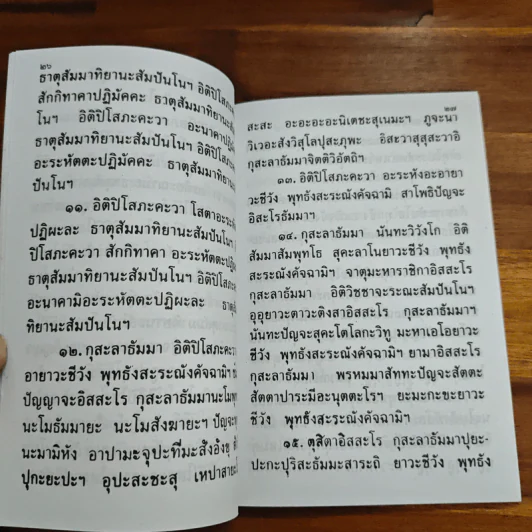 ๒๖
ธาตุสัมมาทิยานะสัมปันโนฯ อิติปิโสภะคะวา
สักกิทาคาปฏิมัคคะ ธาตุสัมมาทิยานะสัมปัน
โนฯ อิติปิโสภะคะวา อะนาคาปฏิ
ธาตุสัมมาทิยานะสัมปันโนฯ อิติปิโส
อะระหัตตะปฏิมัคคะ ธาตุสัมมาทิ
ปันโนฯ
๑๑. อิติปิโสภะคะวา โสตาอะระ
ปฏิผะละ ธาตุสัมมาทิยานะสัมปันโนฯ
ปิโสภะคะวา สักกิทาคา อะระหัตตะปฏิ
ธาตุสัมมาทิยานะสัมปันโนฯ อิติปิโส
อะนาคามิอะระหัตตะปฏิผะละ ธาตุ
ทิยานะสัมปันโนฯ
๑๒. กุสะลาธัมมา อิติปิโสภะคะวา
อายาวะชีวัง พุทธังสะระณังคัจฉามิฯ
ปัญญาจะอิสสะโร กุสะลาธัมมานะโมพุท
นะโมธัมมายะ นะโมสังฆายะฯ ปัญจะ
นะมามิหัง อาปามะจุปะทีมะสังอังขุ
ปุกะยะปะฯ อุปะสะชะสุ เหปาสายะ
๒๗
สะสะ อะอะอะอะนิเตชะสุเนมะฯ ภูจะนา
วิเวอะสังวิสุโลปุสะภุพะ อิสะวาสุสุสะวาอิ
กุสะลาธัมมาจิตติวิอัตถิฯ
๑๓. อิติปิโสภะคะวา อะระหังอะอายา
วะชีวัง พุทธังสะระณังคัจฉามิ สาโพธิปัญจะ
อิสะโรธัมมาฯ
๑๔. กุสะลาธัมมา นันทะวิวังโก อิติ
สัมมาสัมพุทโธ สุคะลาโนยาวะชีวัง พุทธัง
สะระณังคัจฉามิฯ จาตุมะหาราชิกาอิสสะโร
กุสะลาธัมมา อิติวิชชาจะระณะสัมปันโนฯ
อุอุยาวะตาวะติงสาอิสสะโร กุสะลาธัมมาฯ
นันทะปัญจะสุคะโตโลกะวิทู มะหาเอโอยาวะ
ชีวัง พุทธังสะระณังคัจฉามิฯ ยามาอิสสะโร
กุสะลาธัมมา พรหมมาสัททะปัญจะสัตตะ
สัตตาปาระมีอะนุตตะโรฯ ยะมะกะขะยาวะ
ชีวัง พุทธังสะระณังคัจฉามิฯ
๑๕. ตุสิตาอิสสะโร กุสะลาธัมมาปุยะ-
ปะกะปุริสะธัมมะสาระถิ ยาวะชีวัง พุทธัง